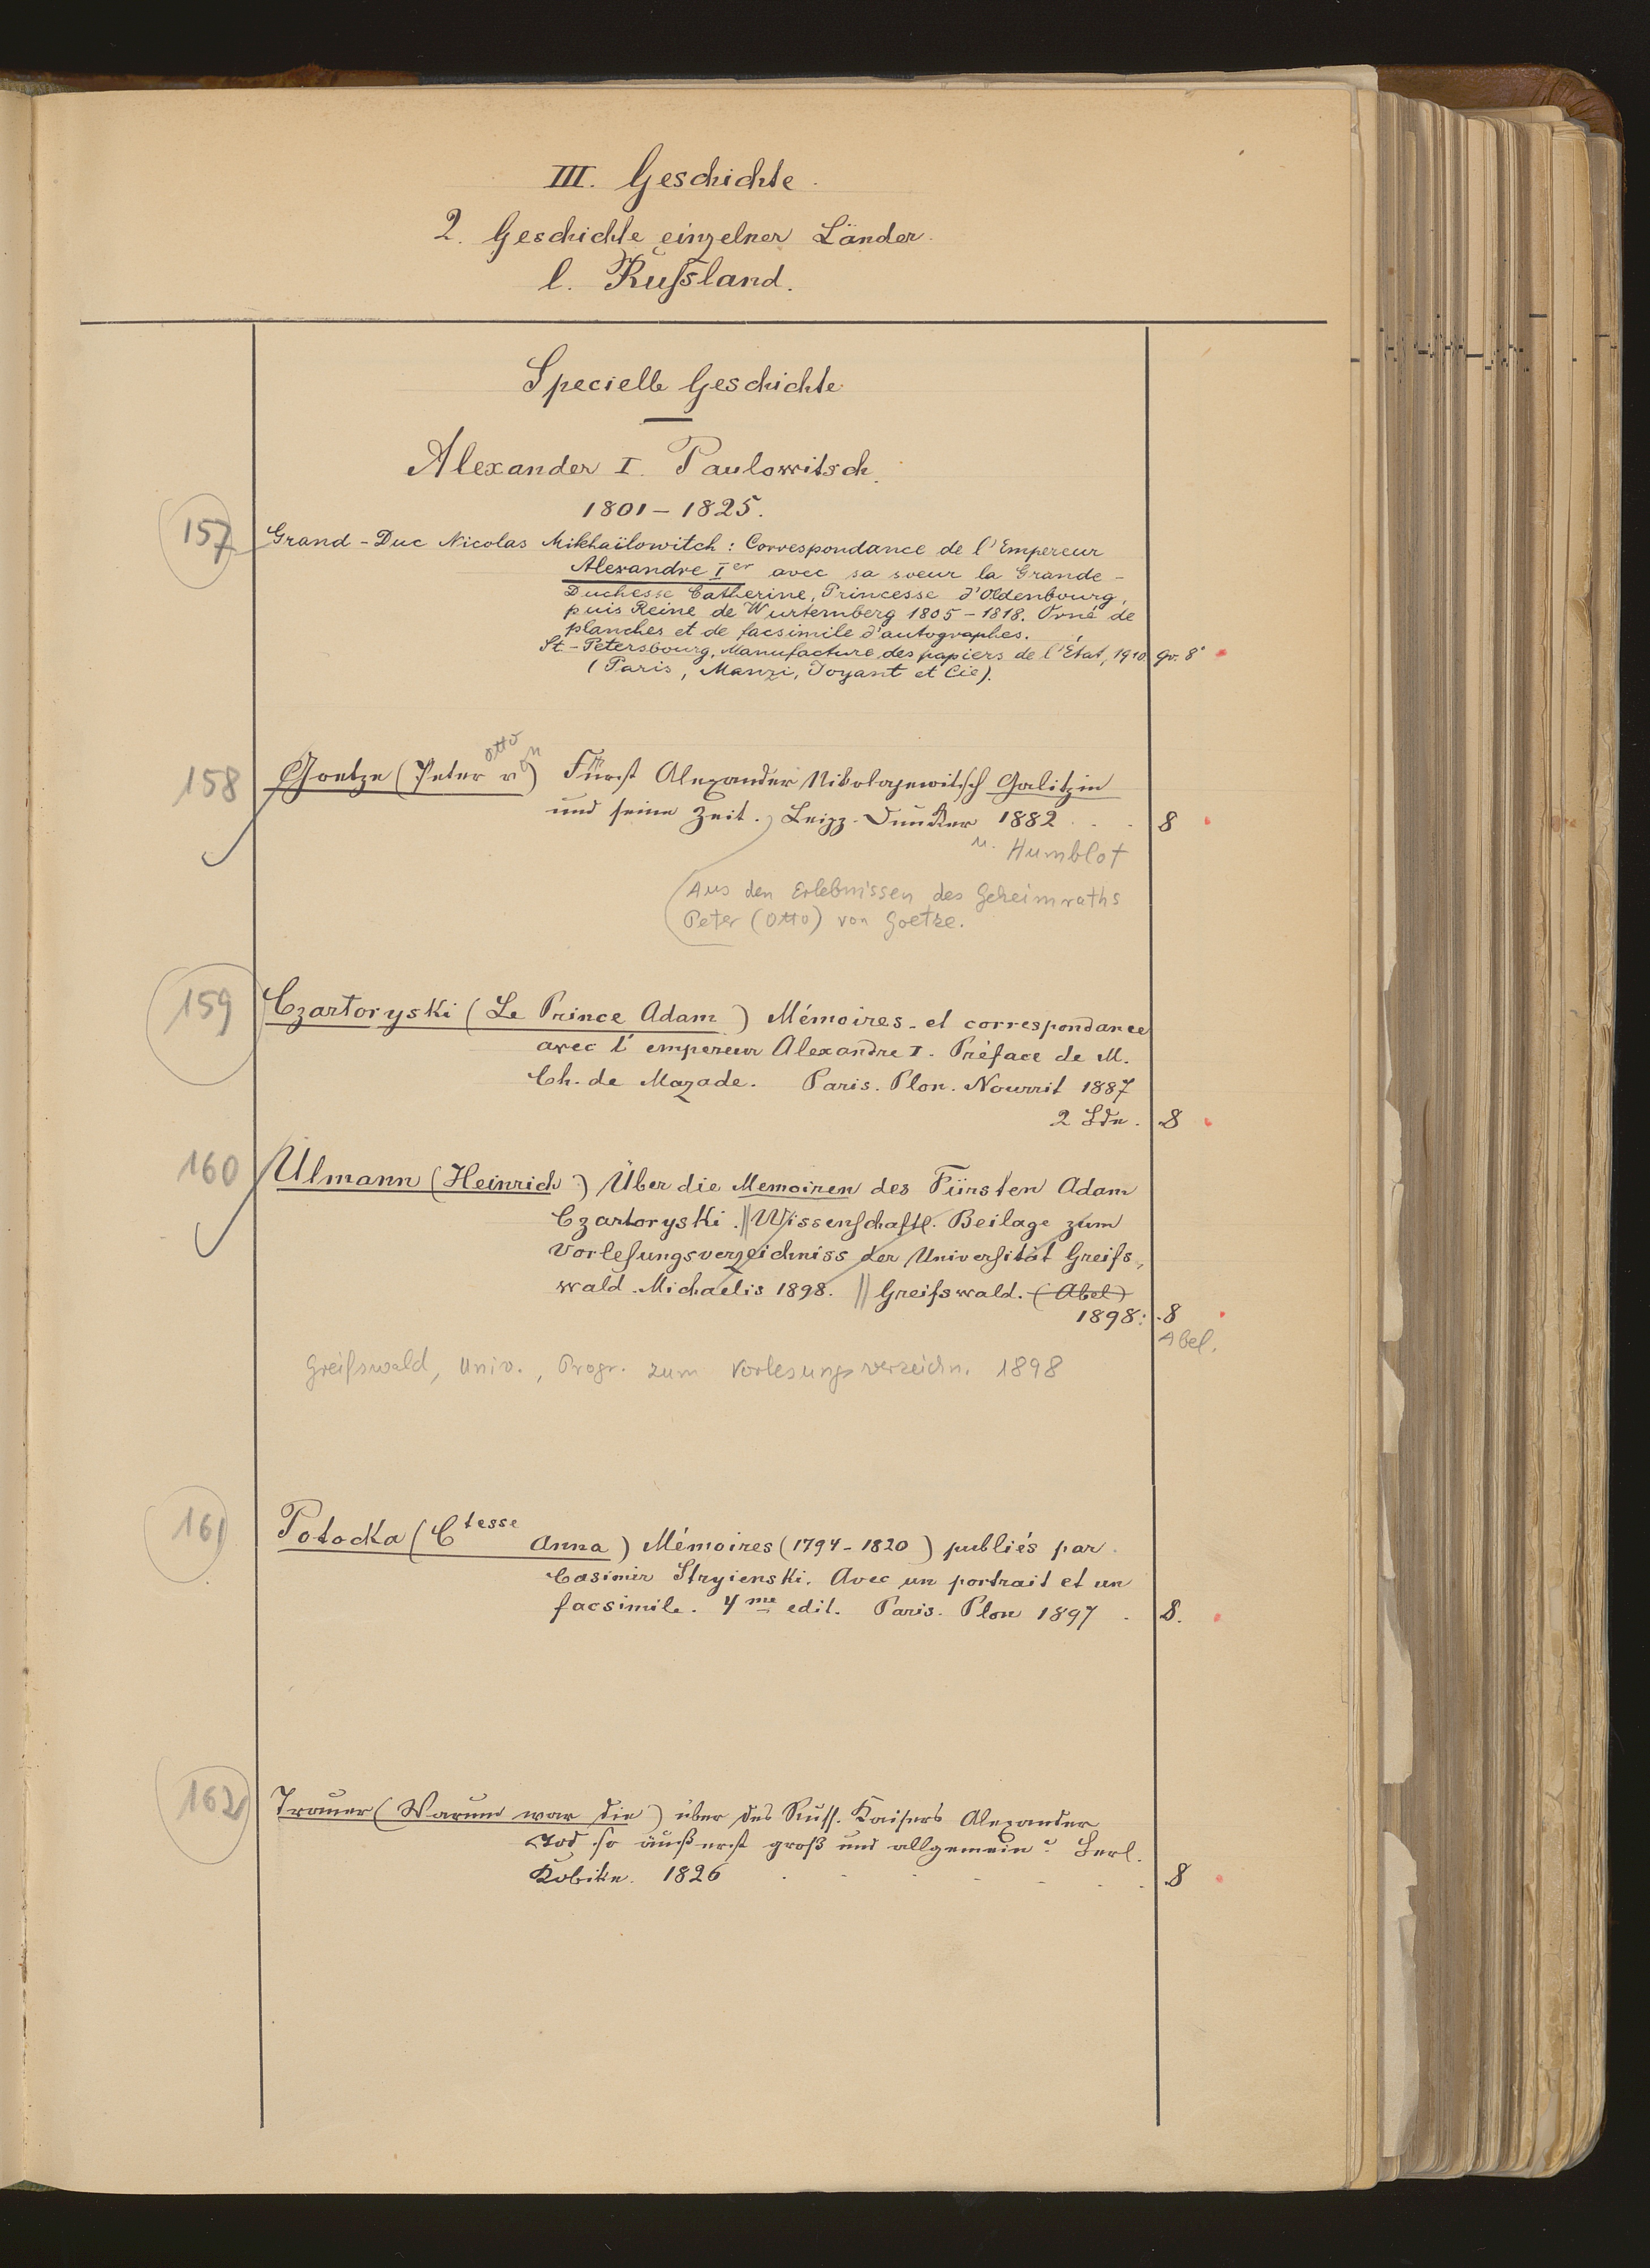 III. Geschichte.
2. Geschichte einzelner Länder.
l. Rußland.
Specielle Geschichte
Alexander I. Paulowitsch.
1801 – 1825.
157 Grand-Duc Nicolas Mikhaïlowitch: Correspondance de l'Empereur
Alexandre Ier avec sa soeur la Grande-
Duchesse Catherine, Princesse d'Oldenbourg,
puis Reine de Wurtemberg 1805–1818. Orné de
planches et de facsimile d'autographes.
St-Petersbourg, Manufacture des papiers de l'État, 1910. gr. 8°
(Paris, Manzi, Joyant et Cie).
Otto
158 Goetze (Peter von) Fürst Alexander Nikolajewitsch Galitzin
und seine Zeit. Leipz. Duncker 1882 . . . 8
u. Humblot
Aus den Erlebnissen des Geheimraths
Peter (Otto) von Goetze.
159 Czartoryski (Le Prince Adam) Mémoires et correspondance
avec l'empereur Alexandre I. Préface de M.
Ch. de Mazade. Paris. Plon. Nourrit 1887
2 Bde. 8
160 Ulmann (Heinrich) Über die Memoiren des Fürsten Adam
Czartoryski. || Wissenschaftl. Beilage zum
Vorlesungsverzeichniss der Universität Greifs-
wald. Michaelis 1898. || Greifswald. (Abel)
1898. 8
Abel.
Greifswald, Univ., Progr. zum Vorlesungsverzeichn. 1898
161 Potocka (Ctesse Anna) Mémoires (1794–1820) publiés par
Casimir Stryienski. Avec un portrait et un
facsimile. 4me edit. Paris. Plon 1897 . 8.
162 Trauer (Warum war die) über des Russ. Kaisers Alexander
Tod so äußerst groß und allgemein? Berl.
Kobitzke. 1826 . . . . . . 8